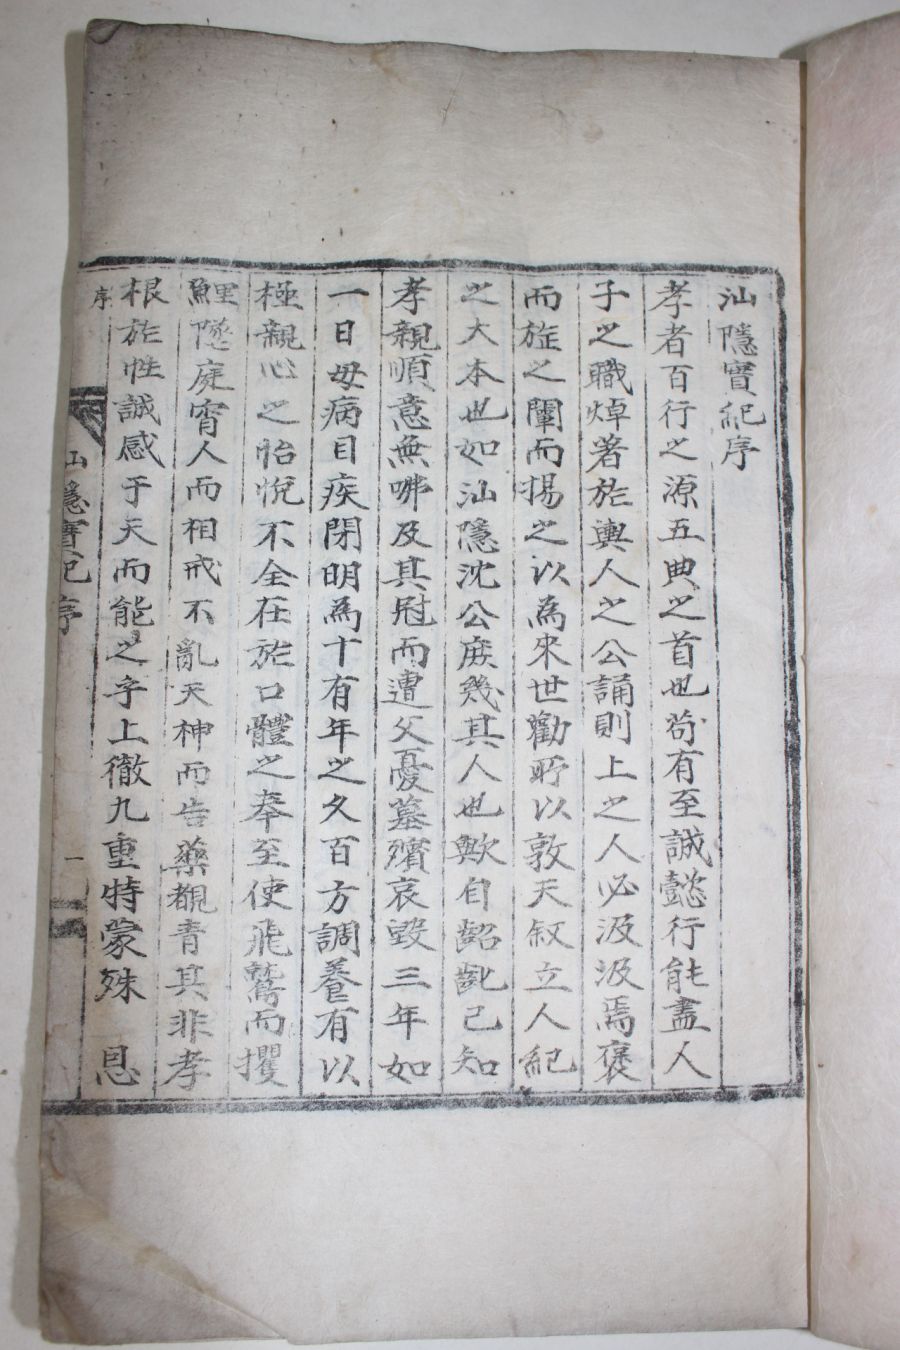 汕隱實紀序
孝者百行之源五典之首也苟有至誠懿行能盡人
子之職焯著於輿人之公誦則上之人必汲汲焉褒
而旌之闡而揚之以為來世勸所以敦天敍立人紀
之大本也如汕隱沈公庶幾其人也歟自齠齔已知
孝親順意無咈及其冠而遭父憂墓殯哀毁三年如
一日母病目疾閉明為十有年之久百方調養有以
極親心之怡悅不全在於口體之奉至使飛鷲而攫
鯉墜庭宵人而相戒不亂天神而告藥覩青其非孝
根於性誠感于天而能之乎上徹九重特蒙殊 恩
序
汕隱實紀序
一